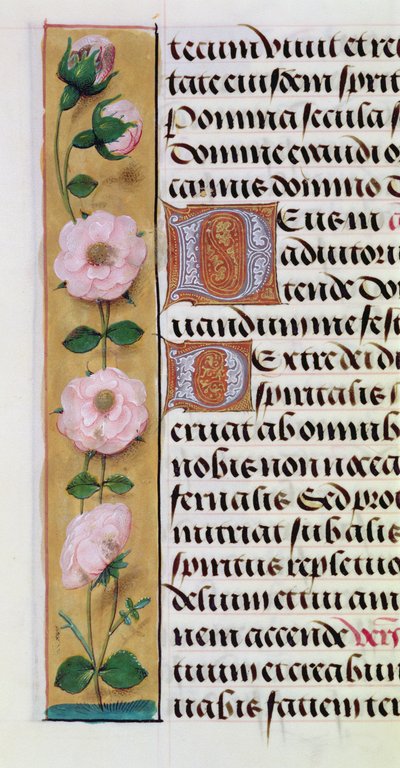 tecum vivit et re
tate eiusdem spirit
Pomnia secula s
Domine exaudi o
camus domino D
Deus in a
adiutori
tende Do
uandum me fest
Dextre dei di
spiritalis
eruat ab omnib
nobis non nocea
fernalis Sed prot
mittat sub alis
spiritus repletio
delium et tu am
nem accende vers
tuum et creabun
uabis faciem ter